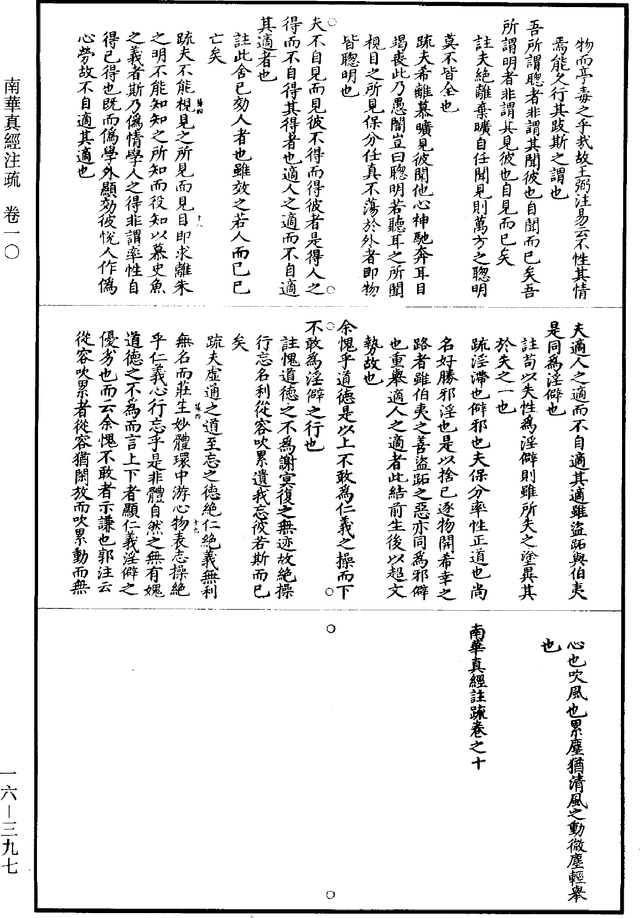 物而亭毒之乎哉故王弼注易云不性其情
焉能久行其致斯之謂也
吾所謂聰者非謂其聞彼也自聞而已矣吾
所謂明者非謂其見彼也自見而已矣
註夫絕離棄曠自任聞見則萬方之聰明
莫不皆全也
疏夫希離慕曠見彼聞他心神馳奔耳目
竭喪此乃愚闇豈曰聰明若聽耳之所聞
視目之所見保分任真不蕩於外者即物
皆聰明也
夫不自見而見彼不自得而得彼者是得人之
得而不自得其得者也適人之適而不自適
其適者也
註此舍已効人者也雖效之若人而已已
亡矣
疏夫不能視見之所見而見目即求離朱
之明不能知知之所知而役知以慕史魚
之義者斯乃偽情學人之得非謂率性自
得已得也既而偽學外顯効彼悅人作偽
心勞故不自適其適也
夫適人之適而不自適其適雖盜跖與伯夷
是同為淫僻也
註苟以失性為淫僻則雖所失之塗異其
於失之一也
疏淫滯也僻邪也夫保分率性正道也尚
名好勝邪淫也是以捨已逐物開希幸之
路者雖伯夷之善盜跖之惡亦同為邪僻
也重舉適人之適者此結前生後以起文
勢故也
余愧乎道德是以上不敢為仁義之操而下
不敢為淫僻之行也
註愧道德之不為謝冥復之無迹故絕操
行忘名利從容吹累遺我忘彼若斯而已
矣
疏夫虛通之道至忘之德絕仁絕義無利
無名而莊生妙體環中游心物表志操絕
乎仁義心行忘乎是非體自然之無有愧
道德之不為而言上下者顯仁義淫僻之
優劣也而云余愧不敢者示謙也郭注云
從容吹累者從容猶閑放而吹累動而無
心也吹風也累塵猶清風之動微塵輕舉
也
南華真經註疏卷之十
南華真經注疏 卷一〇
一六—三九七